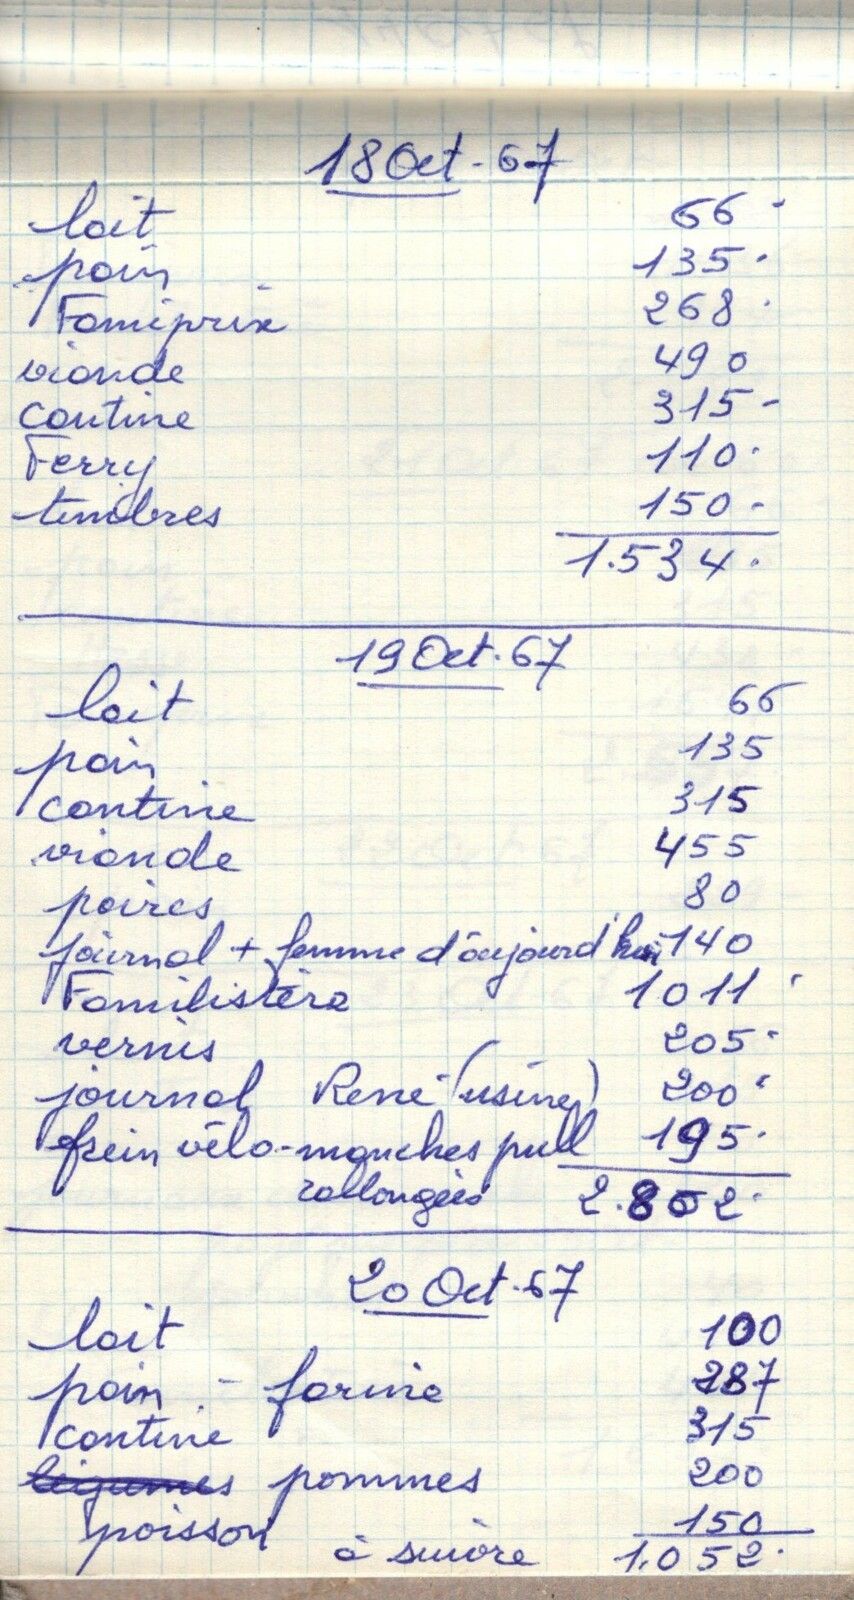 18 Oct-67
lait 66
pain 135.
Famiprix 268.
viande 490
cantine 315-
Ferry 110.
timbres 150-
1.534.
19 Oct.67
lait 66
pain 135
cantine 315
viande 455
poires 80
journal + femme d'aujourd'hui 140
Familistère 1011
vernis 205.
journal René (usine) 200
frein vélo-manches pull 195.
rallongées 2.802.
20 Oct.67
lait 100
pain - farine 287
cantine 315
légumes pommes 200
poisson 150
à suivre 1.052.